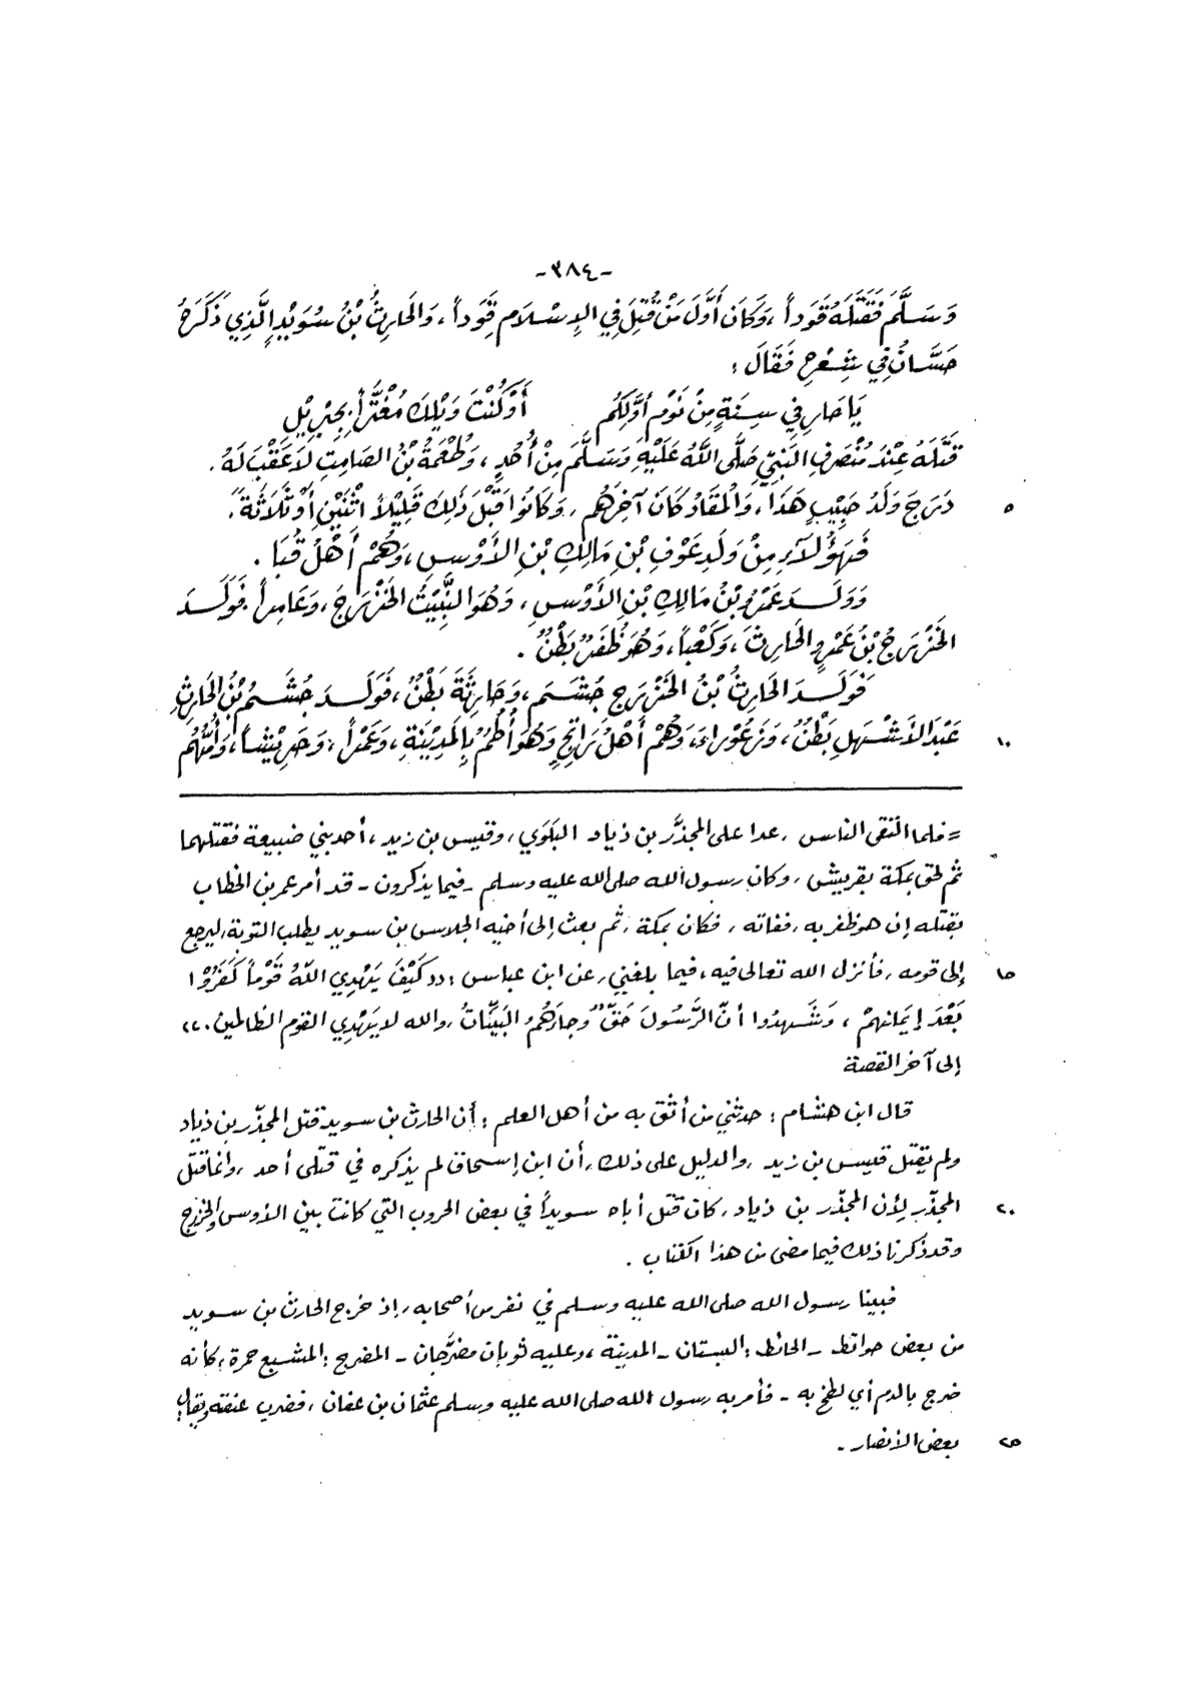 -٣٨٤-
وَسَلَّمَ فَقَتَلَهُ قَوَداً ، وَكَانَ أَوَّلَ مَنْ قُتِلَ فِي الإِسْلَامِ قَوَداً ، وَالحَارِثُ بْنُ سُوَيْدٍ الَّذِي ذَكَرَهُ
حَسَّانُ فِي شِعْرِهِ فَقَالَ :
يَا حَارِ فِي سِنَةٍ مِنْ نَوْمِ أَوَّلِكُم أَوْ كُنْتَ وَيْلَكَ مُغْتَرّاً بِجِبْرِيْلِ
قَتَلَهُ عِنْدَ مُنْصَرَفِ النَّبِيِّ صَلَّى اللَّهُ عَلَيْهِ وَسَلَّمَ مِنْ أُحُدٍ ، وَطُعْمَةُ بْنُ الصَامِتِ لَا عَقْبَ لَهُ .
دَرَجَ وَلَدُ حَبِيْبٍ هَذَا ، وَالْمَقَادُ كَانَ آخِرَهُم ، وَكَانُوا قَبْلَ ذَلِكَ قَلِيْلاً اثْنَيْنِ أَوْ ثَلَاثَةً . ٥
فَهَؤُلَاءِ مِنْ وَلَدِ عَوْفِ بْنِ مَالِكِ بْنِ الأَوْسِ ، وَهُمْ أَهْلُ قُبَا .
وَوَلَدَ عَمْرُو بْنُ مَالِكِ بْنِ الأَوْسِ ، وَهُوَ النَّبِيْتُ الخَزْرَجَ ، وَعَامِراً . فَوَلَدَ
الخَزْرَجُ بْنُ عَمْرٍو الحَارِثَ ، وَكَعْباً ، وَهُوَ ظَفَرُ بَطْنٌ .
فَوَلَدَ الحَارِثُ بْنُ الخَزْرَجِ جُشَمَ ، وَحَارِثَةَ بَطْنٌ ، فَوَلَدَ جُشَمُ بْنُ الحَارِثِ
عَبْدَ الأَشْهَلِ بَطْنٌ ، وَزَعُوْرَاءَ ، وَهُمْ أَهْلُ رَاتِجٍ وَهُوَ أُطُمٌ بِالمَدِيْنَةِ ، وَعَمْراً ، وَحَرِيْشاً ، وَأُمُّهُم ١٠
= فلما التقى الناس ، عدا على المجذَّر بن ذياد البَلَوي ، وقيس بن زيد ، أحد بني ضبيعة فقتلهما
ثم لحق بمكة بقريش ، وكان رسول الله صلى الله عليه وسلم - فيما يذكرون - قد أمر عمر بن الخطاب
بقتله إن هو ظفر به ، ففاته ، فكان بمكة ، ثم بعث إلى أخيه الجلاس بن سويد يطلب التوبة ، ليرجع
إلى قومه ، فأنزل الله تعالى فيه ، فيما بلغني ، عن ابن عباس : «كَيْفَ يَهْدِي اللَّهُ قَوْماً كَفَرُوْا ١٥
بَعْدَ إِيمَانهِمْ ، وَشَهِدُوا أنّ الرَّسُولَ حَقٌّ وجاءَهُمُ البَيِّناتُ ، والله لا يَهْدِي القوم الظالمين .»
إلى آخر القصة
قال ابن هشام : حدثني من أثق به من أهل العلم : أن الحارث بن سويد قتل المجذّر بن ذياد
ولم يقتل قيس بن زيد ، والدليل على ذلك ، أن ابن إسحاق لم يذكره في قتلى أحد ، وإنما قتل
المجذّر لأن المجذّر بن ذياد ، كان قتل أباه سويداً في بعض الحروب التي كانت بين الأوس والخزرج ٢٠
وقد ذكرنا ذلك فيما مضى من هذا الكتاب .
فبينا رسول الله صلى الله عليه وسلم في نفر من أصحابه ، إذ خرج الحارث بن سويد
من بعض حوائط - الحائط : البستان - المدينة ، وعليه ثوبان مضرَّجان - المضرج : المشبع حمرة ؛ كأنه
ضرج بالدم أي لطخ به - فأمر به رسول الله صلى الله عليه وسلم عثمان بن عفان ، فضرب عنقه ويقال :
بعض الأنصار - ٢٥